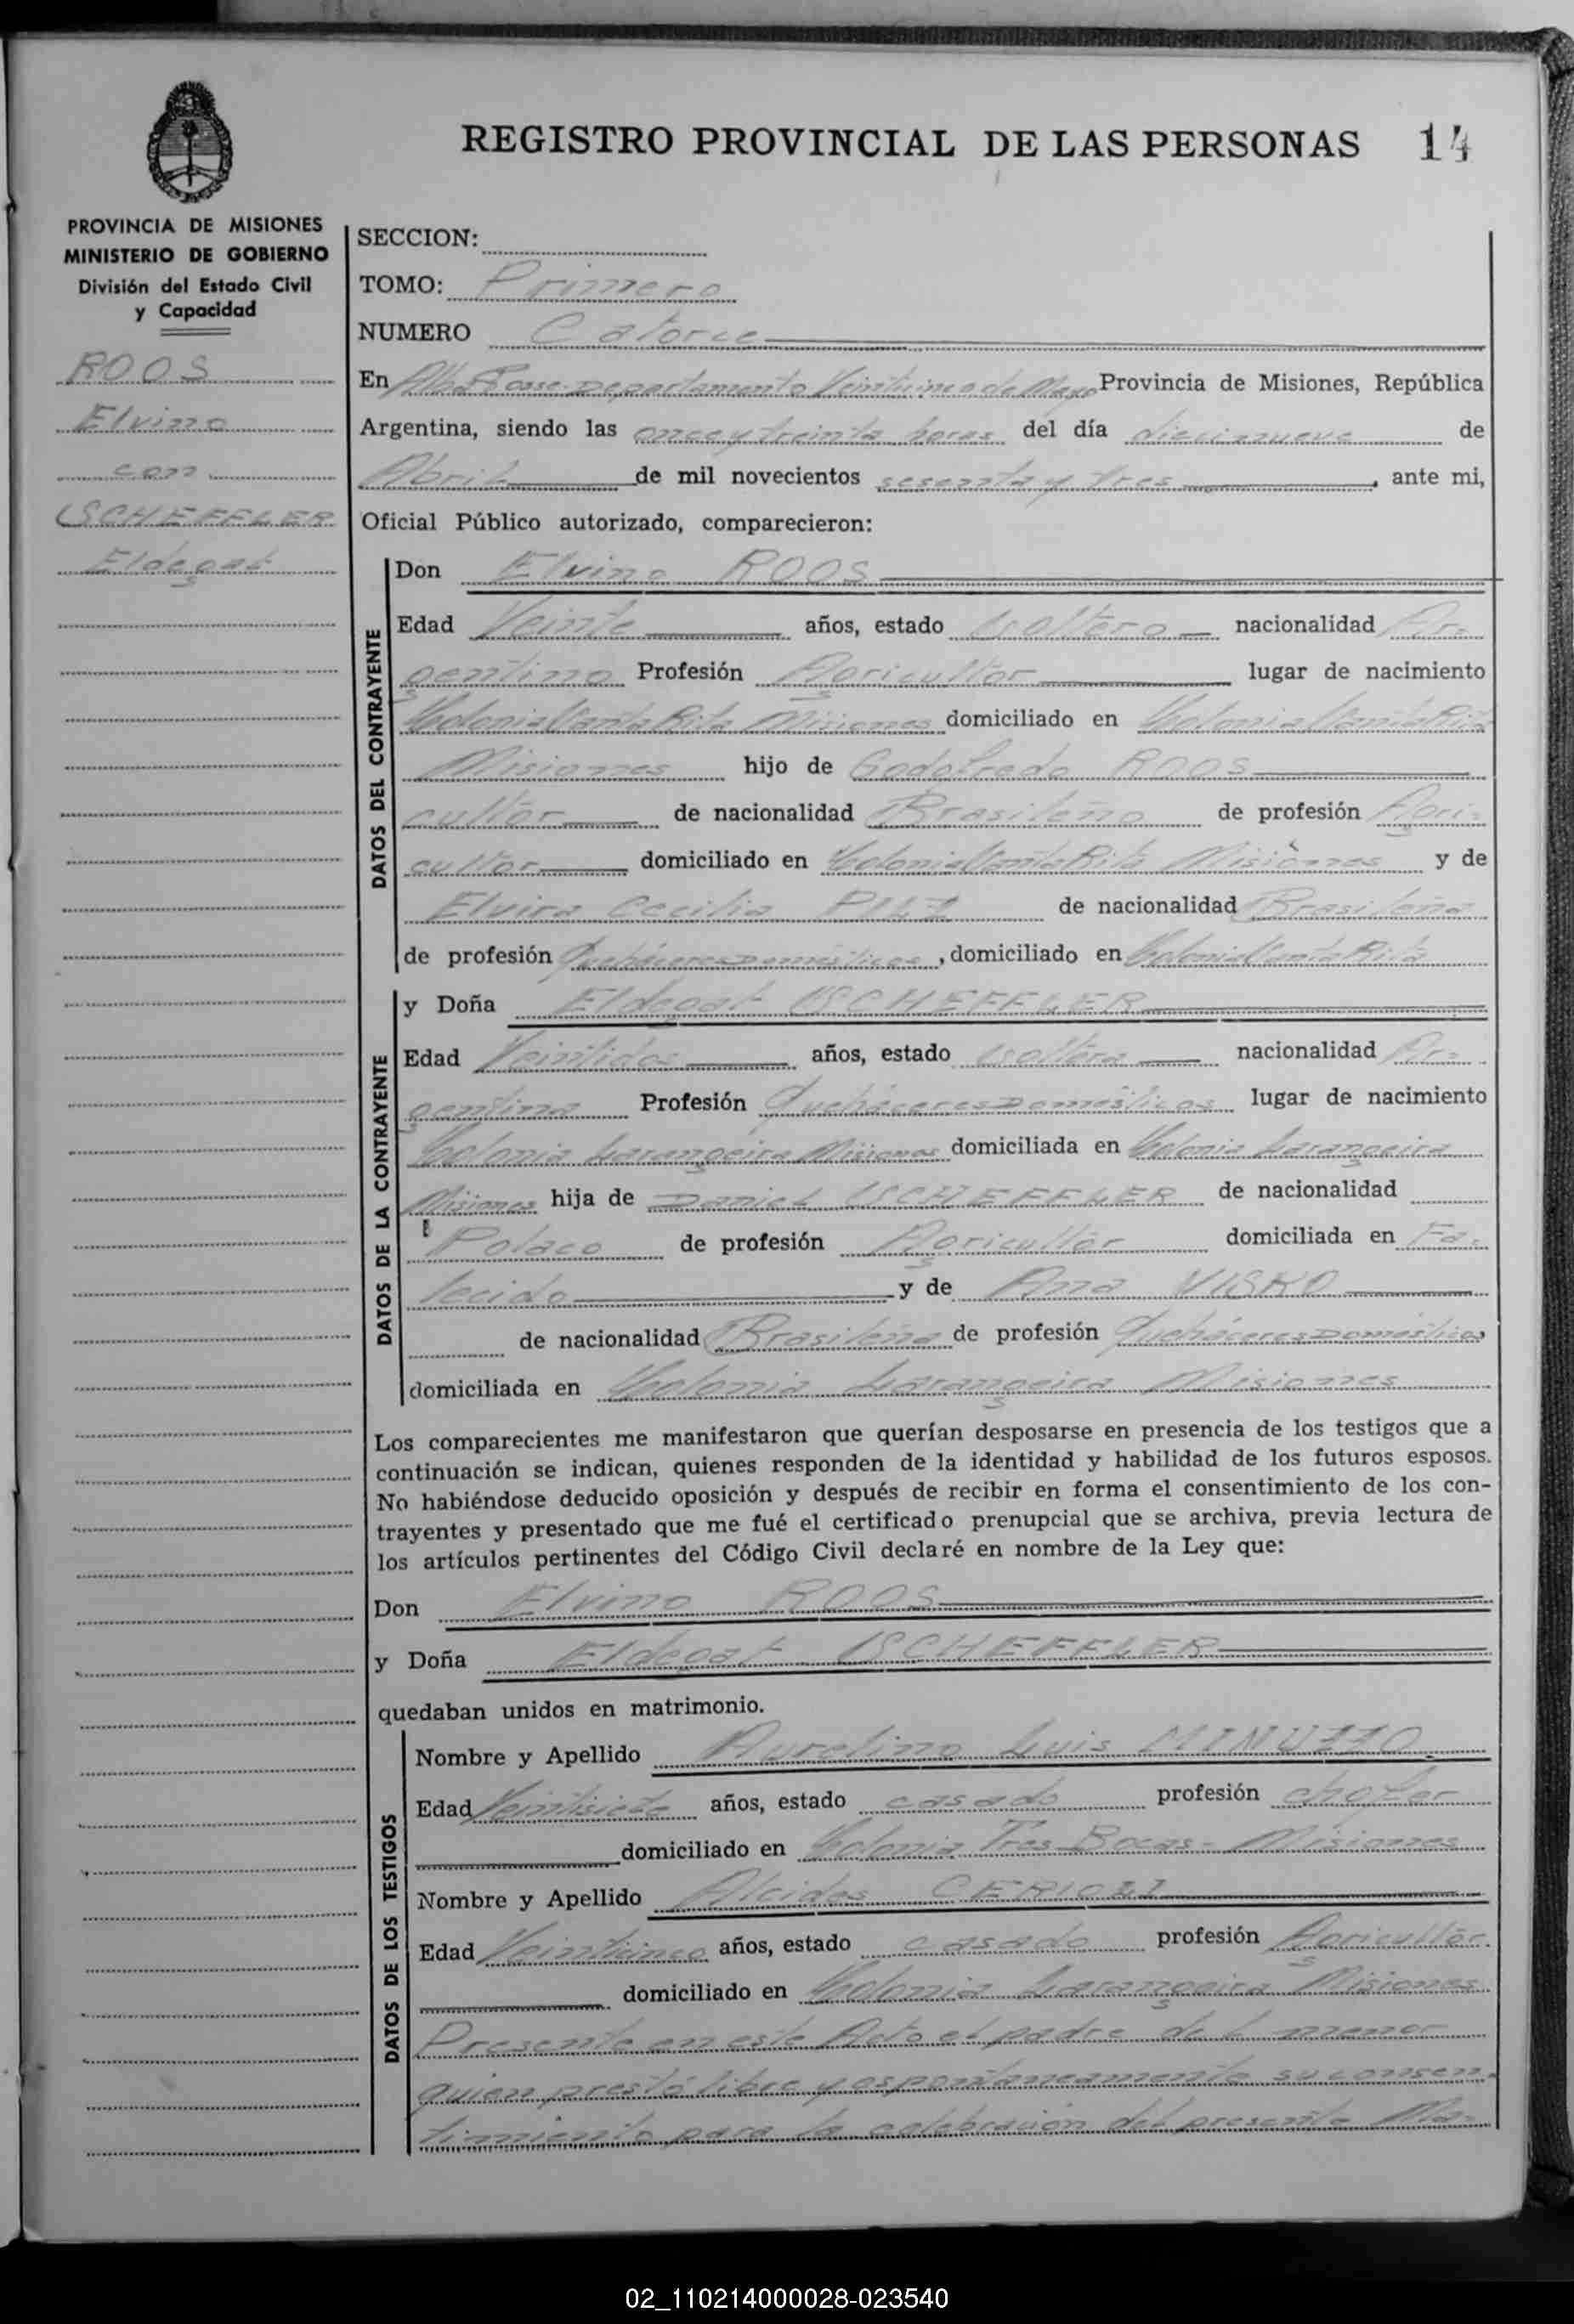 REGISTRO PROVINCIAL DE LAS PERSONAS 14
PROVINCIA DE MISIONES
MINISTERIO DE GOBIERNO
División del Estado Civil
y Capacidad
ROOS
Elvino
con
SCHEFFLER
Eldegat
SECCION:
TOMO: Primero
NUMERO Catorce
En Alba Posse Departamento Veinticinco de Mayo Provincia de Misiones, República
Argentina, siendo las once y treinta horas del día diecinueve de
Abril de mil novecientos sesenta y tres, ante mi,
Oficial Público autorizado, comparecieron:
DATOS DEL CONTRAYENTE
Don Elvino ROOS
Edad Veinte años, estado soltero nacionalidad Ar-
gentino Profesión Agricultor lugar de nacimiento
Colonia Santa Rita Misiones domiciliado en Colonia Santa Rita
Misiones hijo de Godofredo ROOS
cultor de nacionalidad Brasileño de profesión Agri-
cultor domiciliado en Colonia Santa Rita Misiones y de
Elvira Cecilia PILZ de nacionalidad Brasileña
de profesión Quehaceres Domésticos, domiciliado en Colonia Santa Rita
DATOS DE LA CONTRAYENTE
y Doña Eldegat SCHEFFLER
Edad Veintidos años, estado soltera nacionalidad Ar-
gentina Profesión Quehaceres Domésticos lugar de nacimiento
Colonia Larangeira Misiones domiciliada en Colonia Larangeira
Misiones hija de Daniel SCHEFFLER de nacionalidad
Polaco de profesión Agricultor domiciliada en Fa-
lecido y de Ana VISKO
de nacionalidad Brasileña de profesión Quehaceres Domésticos
domiciliada en Colonia Larangeira Misiones
Los comparecientes me manifestaron que querían desposarse en presencia de los testigos que a
continuación se indican, quienes responden de la identidad y habilidad de los futuros esposos.
No habiéndose deducido oposición y después de recibir en forma el consentimiento de los con-
trayentes y presentado que me fué el certificado prenupcial que se archiva, previa lectura de
los artículos pertinentes del Código Civil declaré en nombre de la Ley que:
Don Elvino ROOS
y Doña Eldegat SCHEFFLER
quedaban unidos en matrimonio.
DATOS DE LOS TESTIGOS
Nombre y Apellido Aurelino Luis MINUZZO
Edad Veintisiete años, estado casado profesión chofer
domiciliado en Colonia Tres Bocas - Misiones
Nombre y Apellido Alcides CERIOLI
Edad Veinticinco años, estado casado profesión Agricultor
domiciliado en Colonia Larangeira Misiones
Presente en este Acto el padre del menor
quien prestó libre y espontaneamente su consen-
timiento para la celebración del presente Ma-
02_110214000028-023540